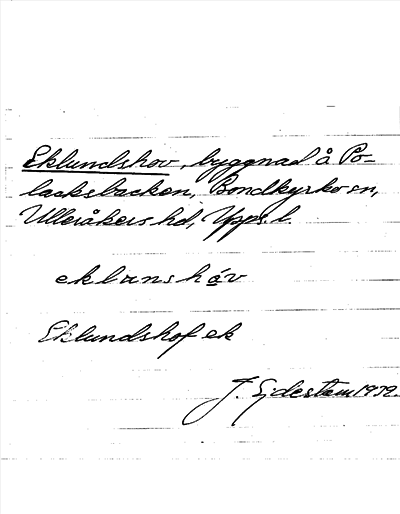 Eklundshov, byggnad å Po-
lacksbacken, Bondkyrko sn,
Ulleråkers hd, Upps. l.
eklunsháv
Eklundshof ek
J. Gjdestam 1932.